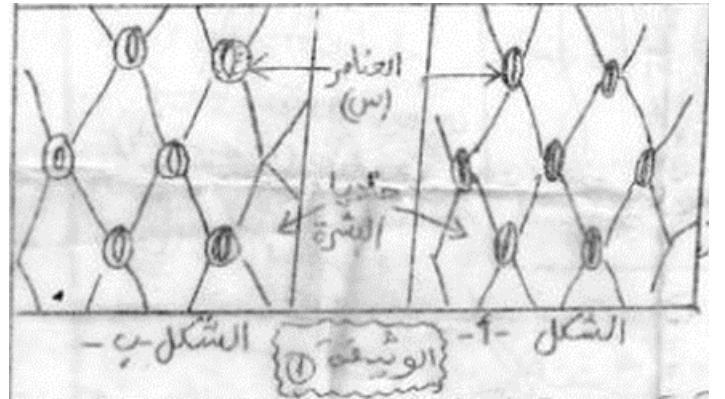 العناصر
(س)
خلايا
البشرة
الشكل -أ-
الشكل -ب-
الوثيقة ①